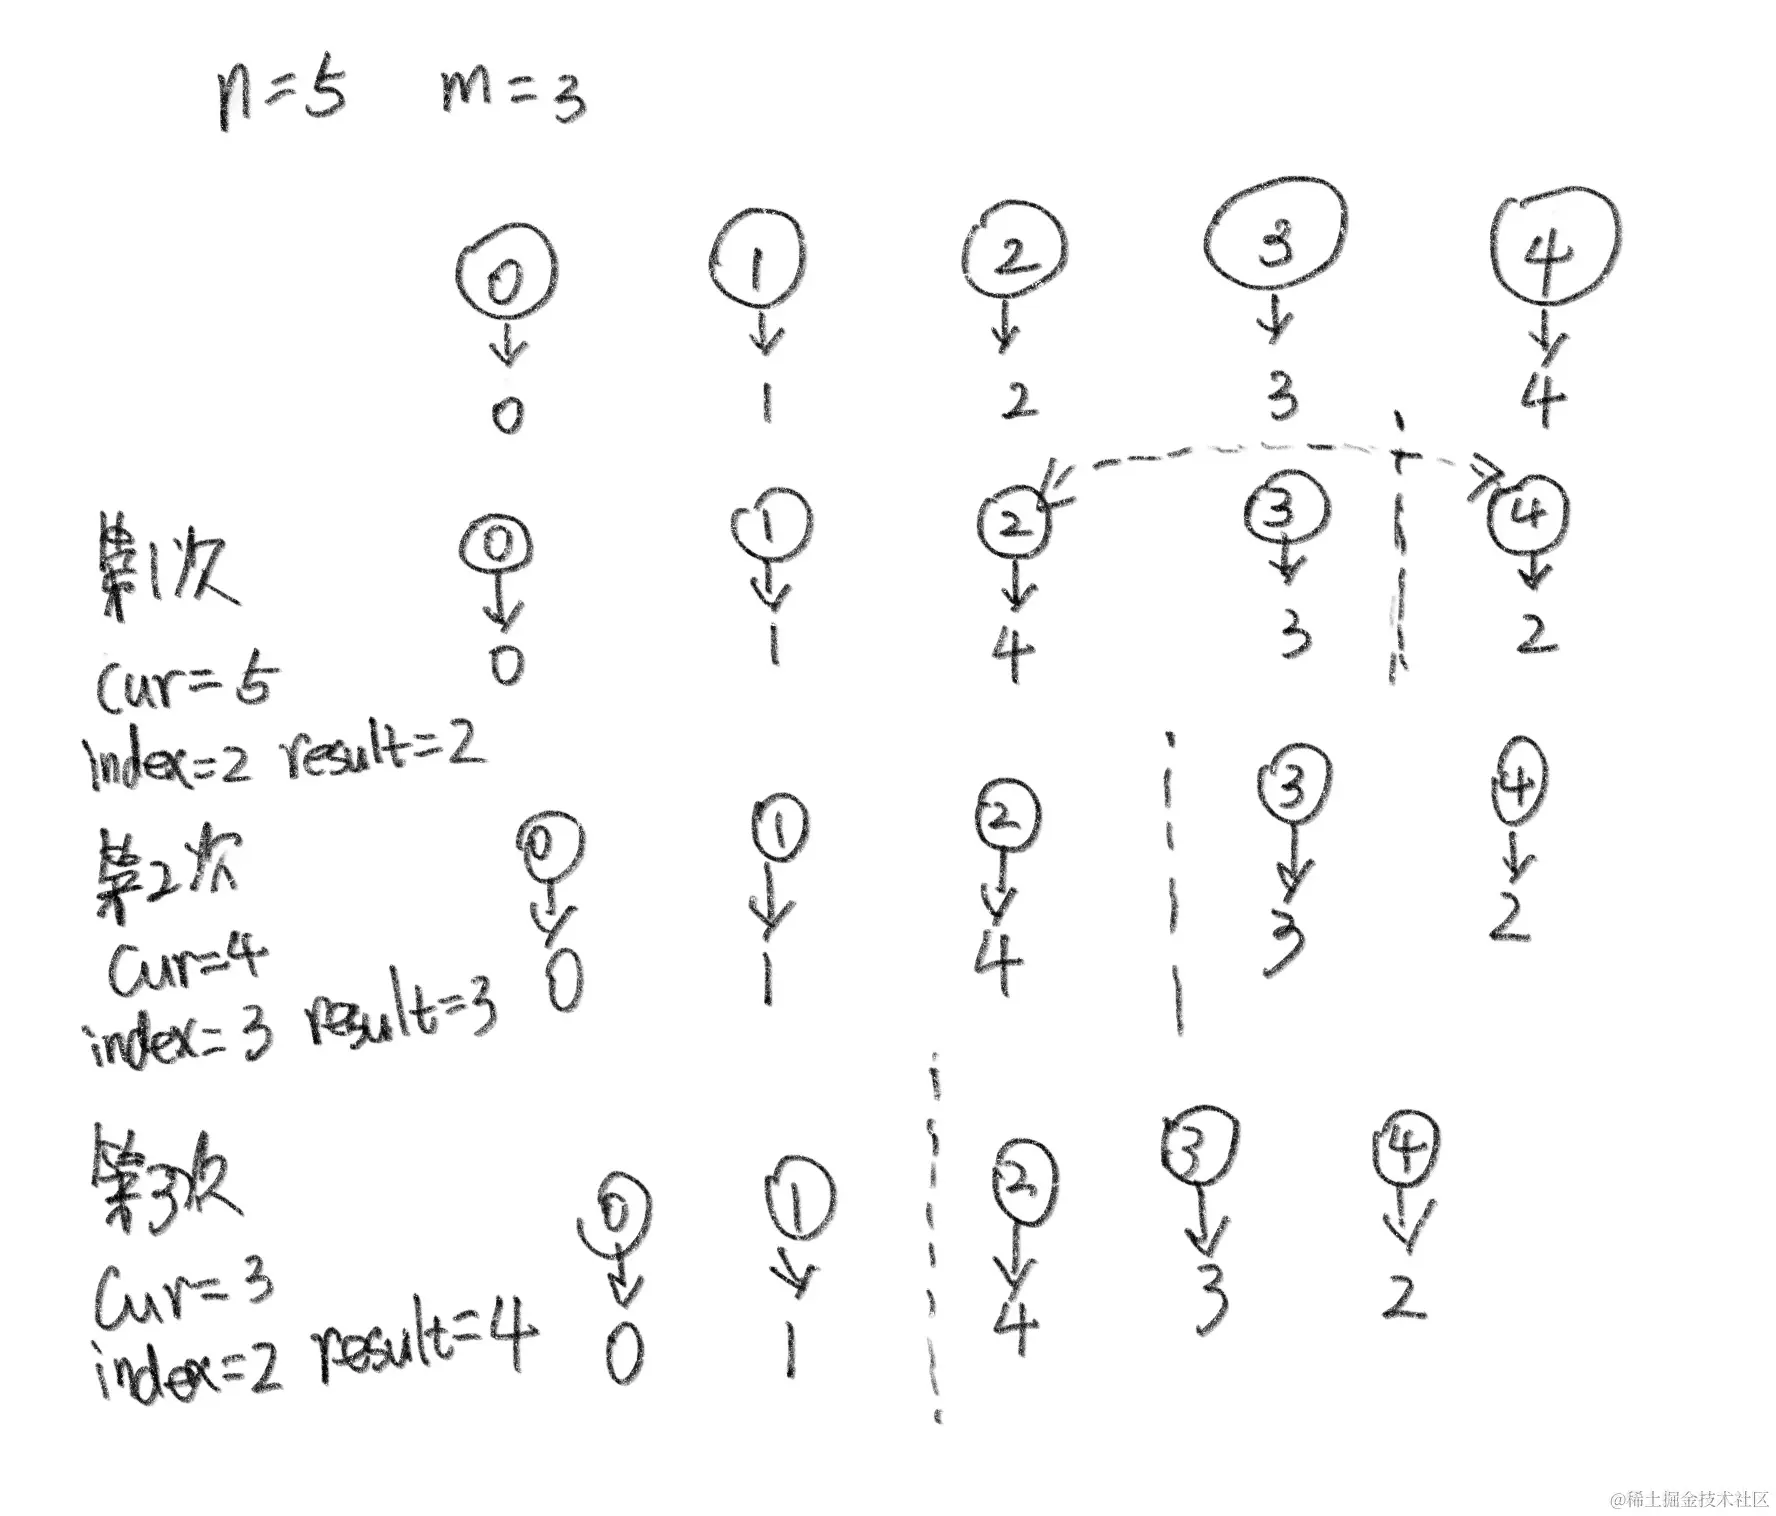 n=5 m=3
0 1 2 3 4
0 1 2 3 4
第1次 0 1 2 3 4
0 1 4 3 2
cur=5
index=2 result=2
第2次 0 1 2 3 4
0 1 4 3 2
cur=4
index=3 result=3
第3次 0 1 2 3 4
0 1 4 3 2
cur=3
index=2 result=4
@稀土掘金技术社区